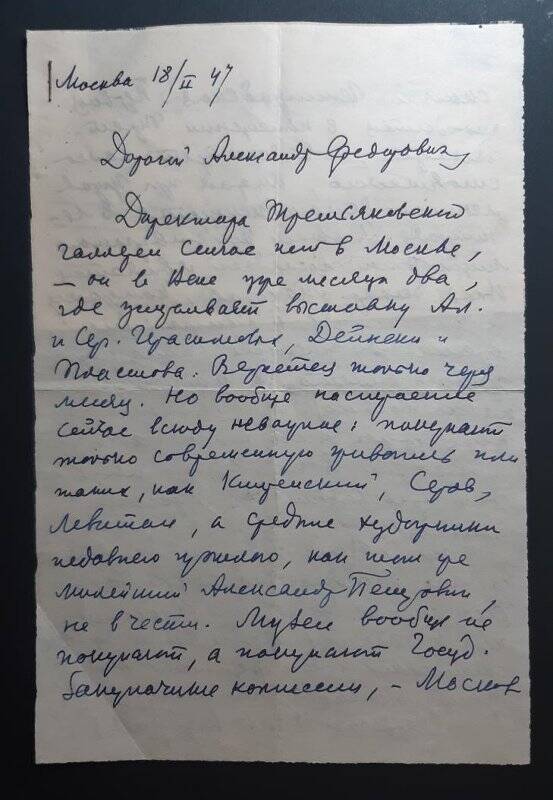 Москва 18/II 47
Дорогой Александр Федорович,
Директора Третьяковской
галлереи сейчас нет в Москве,
– он в Вене уже месяца два,
где устраивает выставку Ал.
и Сер. Герасимовых, Дейнеки и
Пластова. Вернется только через
месяц. Но вообще настроение
сейчас всюду неважное: покупают
только современную живопись или
таких, как Кипренский, Серов,
Левитан, а средние художники
недавнего прошлого, как наш же
милейший Александр Петрович,
не в чести. Музеи вообще не
покупают, а покупают Госуд.
Закупочные комиссии, – Москов